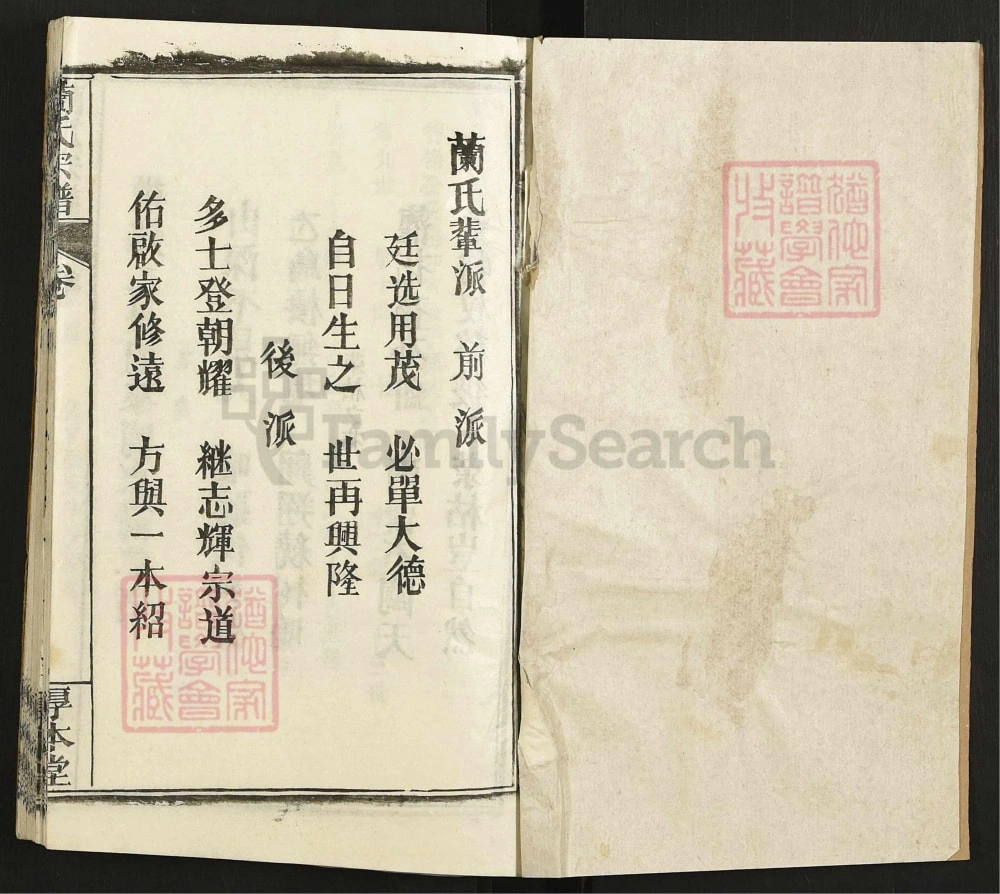 蘭氏輩派 前派
廷选用茂 必單大德
自日生之 世再興隆
後派
多士登朝耀 継志輝宗道
佑啟家修遠 方與一本紹
蘭氏宗譜 卷
厚本堂
FamilySearch